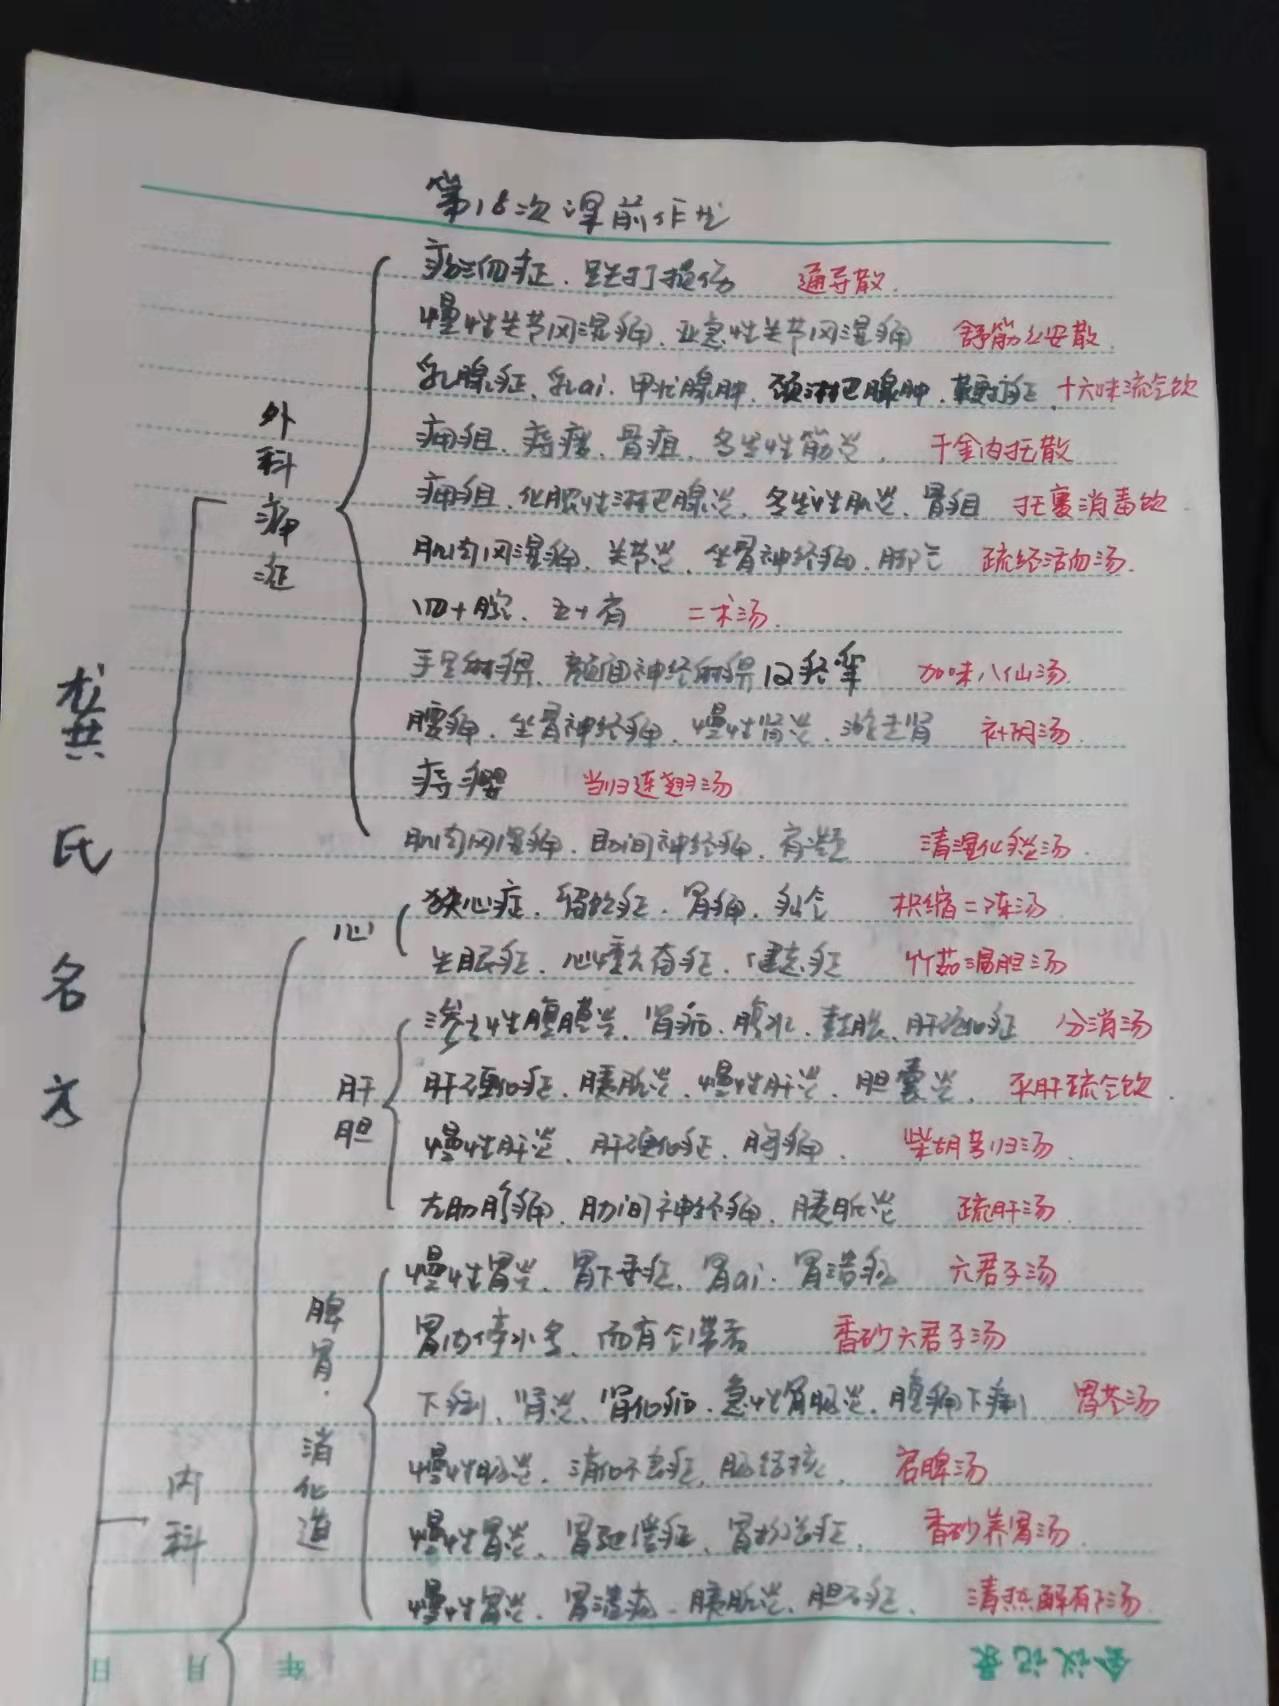 第18次课前作业
龚氏名方
外科痛症
瘀血症、跌打损伤 通导散
慢性关节风湿痛、亚急性关节风湿痛 舒筋立安散
乳腺症、乳ai、甲状腺肿、颈淋巴腺肿、 十六味流气饮
痈疽、痔瘘、骨疽、多发性筋炎、 千金内托散
痈疽、化脓性淋巴腺炎、多发性肌炎、骨疽 托裏消毒饮
肌肉风湿痛、关节炎、坐骨神经痛、脚气 疏经活血汤
四十腕、五十肩 二术汤
手足麻痹、颜面神经麻痹及痉挛 加味八仙汤
腰痛、坐骨神经痛、慢性肾炎、游走肾 补阴汤
痔瘿 当归连翘汤
肌肉风湿痛、肋间神经痛、肩凝 清湿化痰汤
内科
心
狭心症、胃痛、疝气 枳缩二陈汤
失眠症、心悸亢奋症、健忘症 竹茹温胆汤
肝胆
渗出性腹膜炎、肾病、腹水、鼓胀、肝硬化症 分消汤
肝硬化症、胰脏炎、慢性肝炎、胆囊炎、 平肝疏气饮
慢性肝炎、肝硬化症、胸痛、 柴胡芎归汤
左肋胸痛、肋间神经痛、胰脏炎 疏肝汤
脾胃·消化道
慢性胃炎、胃下垂症、胃ai、胃溃疡 六君子汤
胃内停水多、而有气滞者 香砂六君子汤
下痢、肾炎、肾化病、急性胃肠炎、腹痛下痢 胃苓汤
慢性肠炎、消化不良症、肠结核、 启脾汤
慢性胃炎、胃弛缓症、胃扩张症、 香砂养胃汤
慢性胃炎、胃溃疡、胰脏炎、胆石症、 清热解郁汤
会议记录
年 月 日